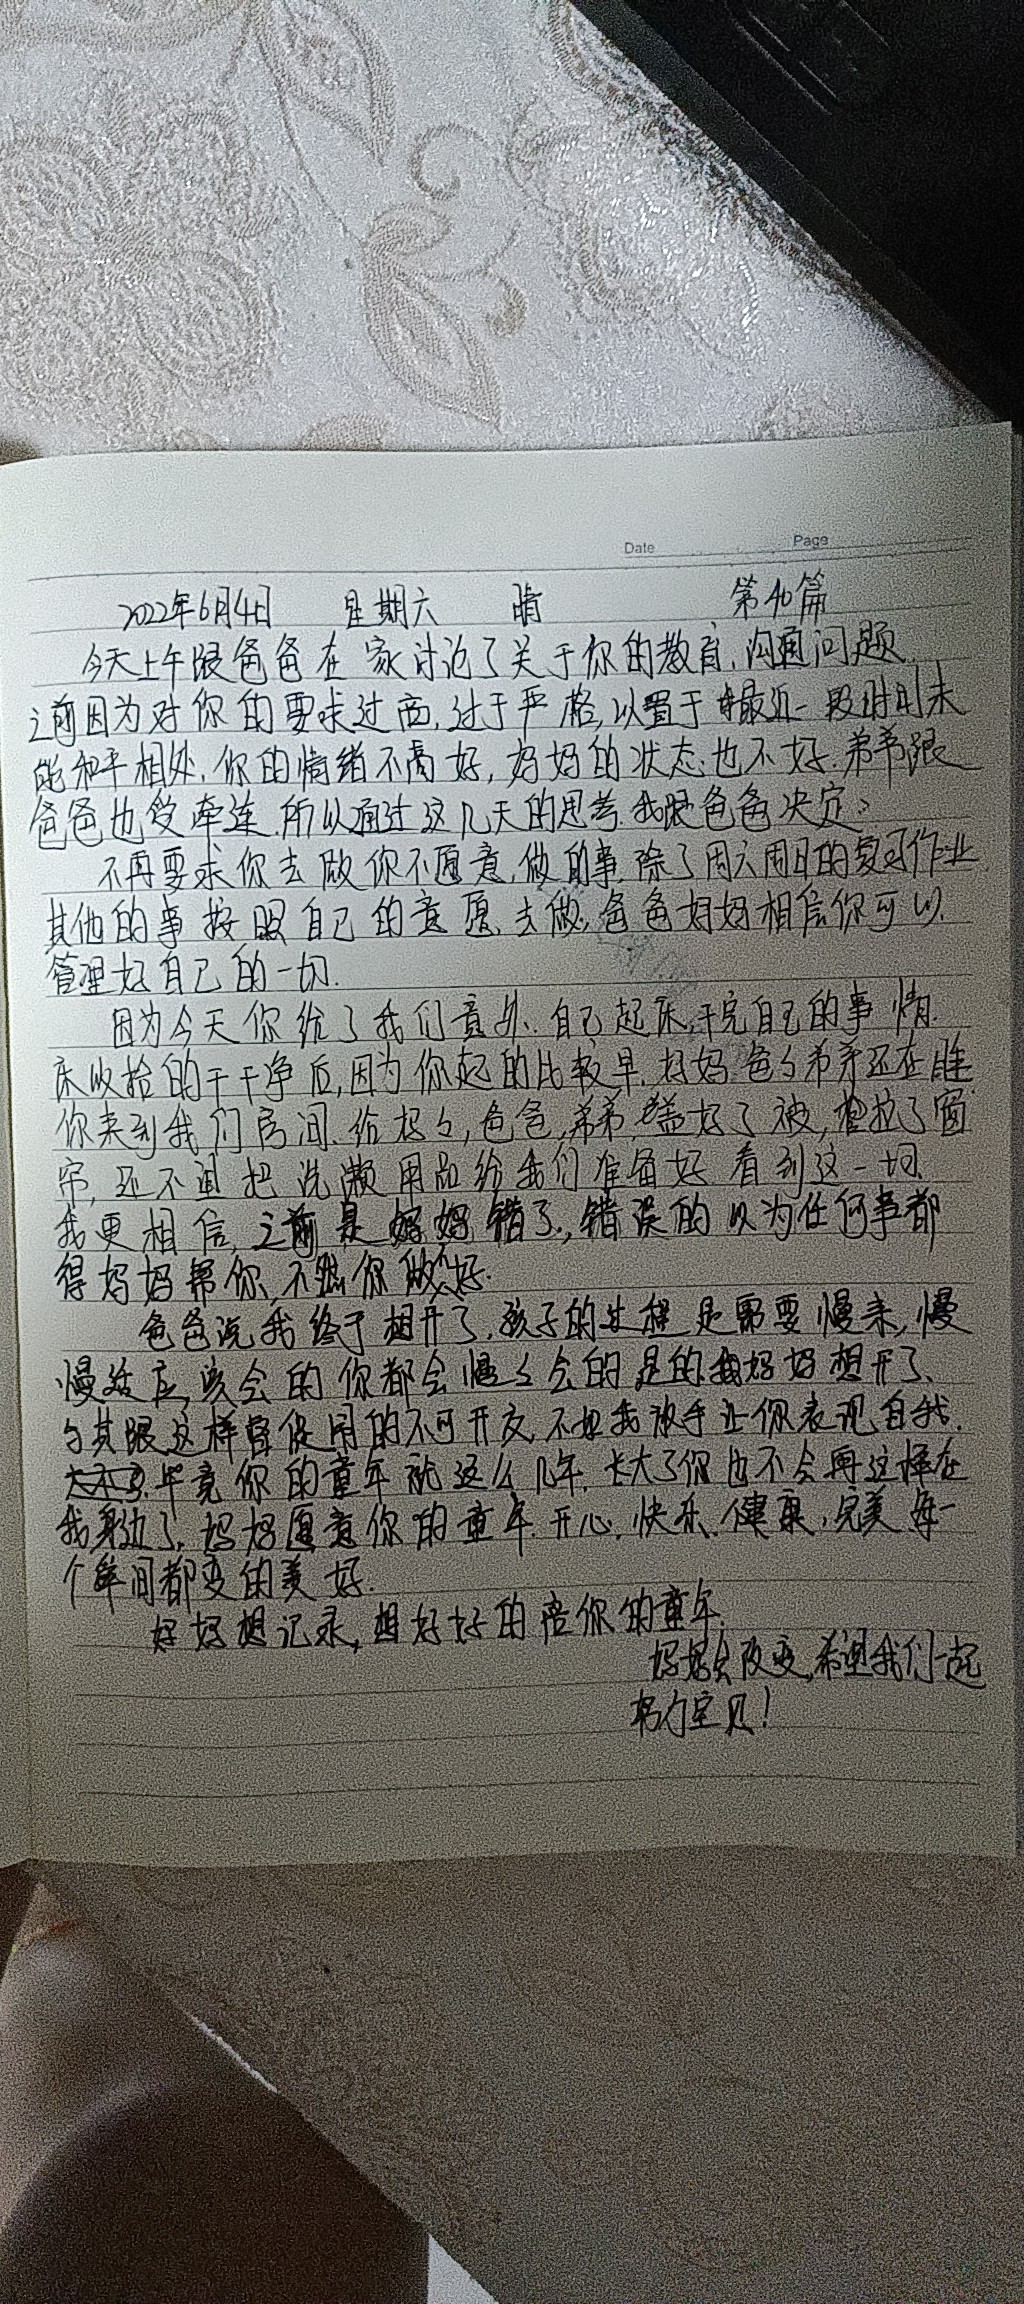 Date Page
2022年6月4日 星期六 晴 第40篇
今天上午跟爸爸在家讨论了关于你的教育,沟通问题.
之前因为对你的要求过高,过于严格,以置于最近一段时间未
能和平相处,你的情绪不高好,妈妈的状态也不好.弟弟跟
爸爸也受牵连.所以通过这几天的思考.我跟爸爸决定:
不再要求你去做你不愿意,做的事,除了周六周日的复习作业
其他的事按照自己的意愿去做,爸爸妈妈相信你可以
管理好自己的一切.
因为今天你给了我们意外.自己起床,干完自己的事情.
床收拾的干干净后,因为你起的比较早.妈妈爸々弟弟还在睡
你来到我们房间.给妈々,爸爸,弟弟,盖好了被,拉了窗
帘,还不但把洗漱用品给我们准备好看到这一切.
我更相信,之前是妈妈错了,错误的以为任何事都
得妈妈帮你,不然你做不好.
爸爸说我终于想开了,孩子的过程是需要慢来,慢
慢适应,该会的你都会慢々会的是的我妈妈想开了、
与其跟这样督促闹的不可开交,不如我放手让你表现自我.
毕竟你的童年就这么几年.长大了你也不会再这样在
我身边了,妈妈愿意你的童年.开心.快乐.健康,完美每一
个瞬间都变的美好.
妈妈想记录,想好好的陪你的童年.
妈妈会改变,希望我们一起
努力宝贝!